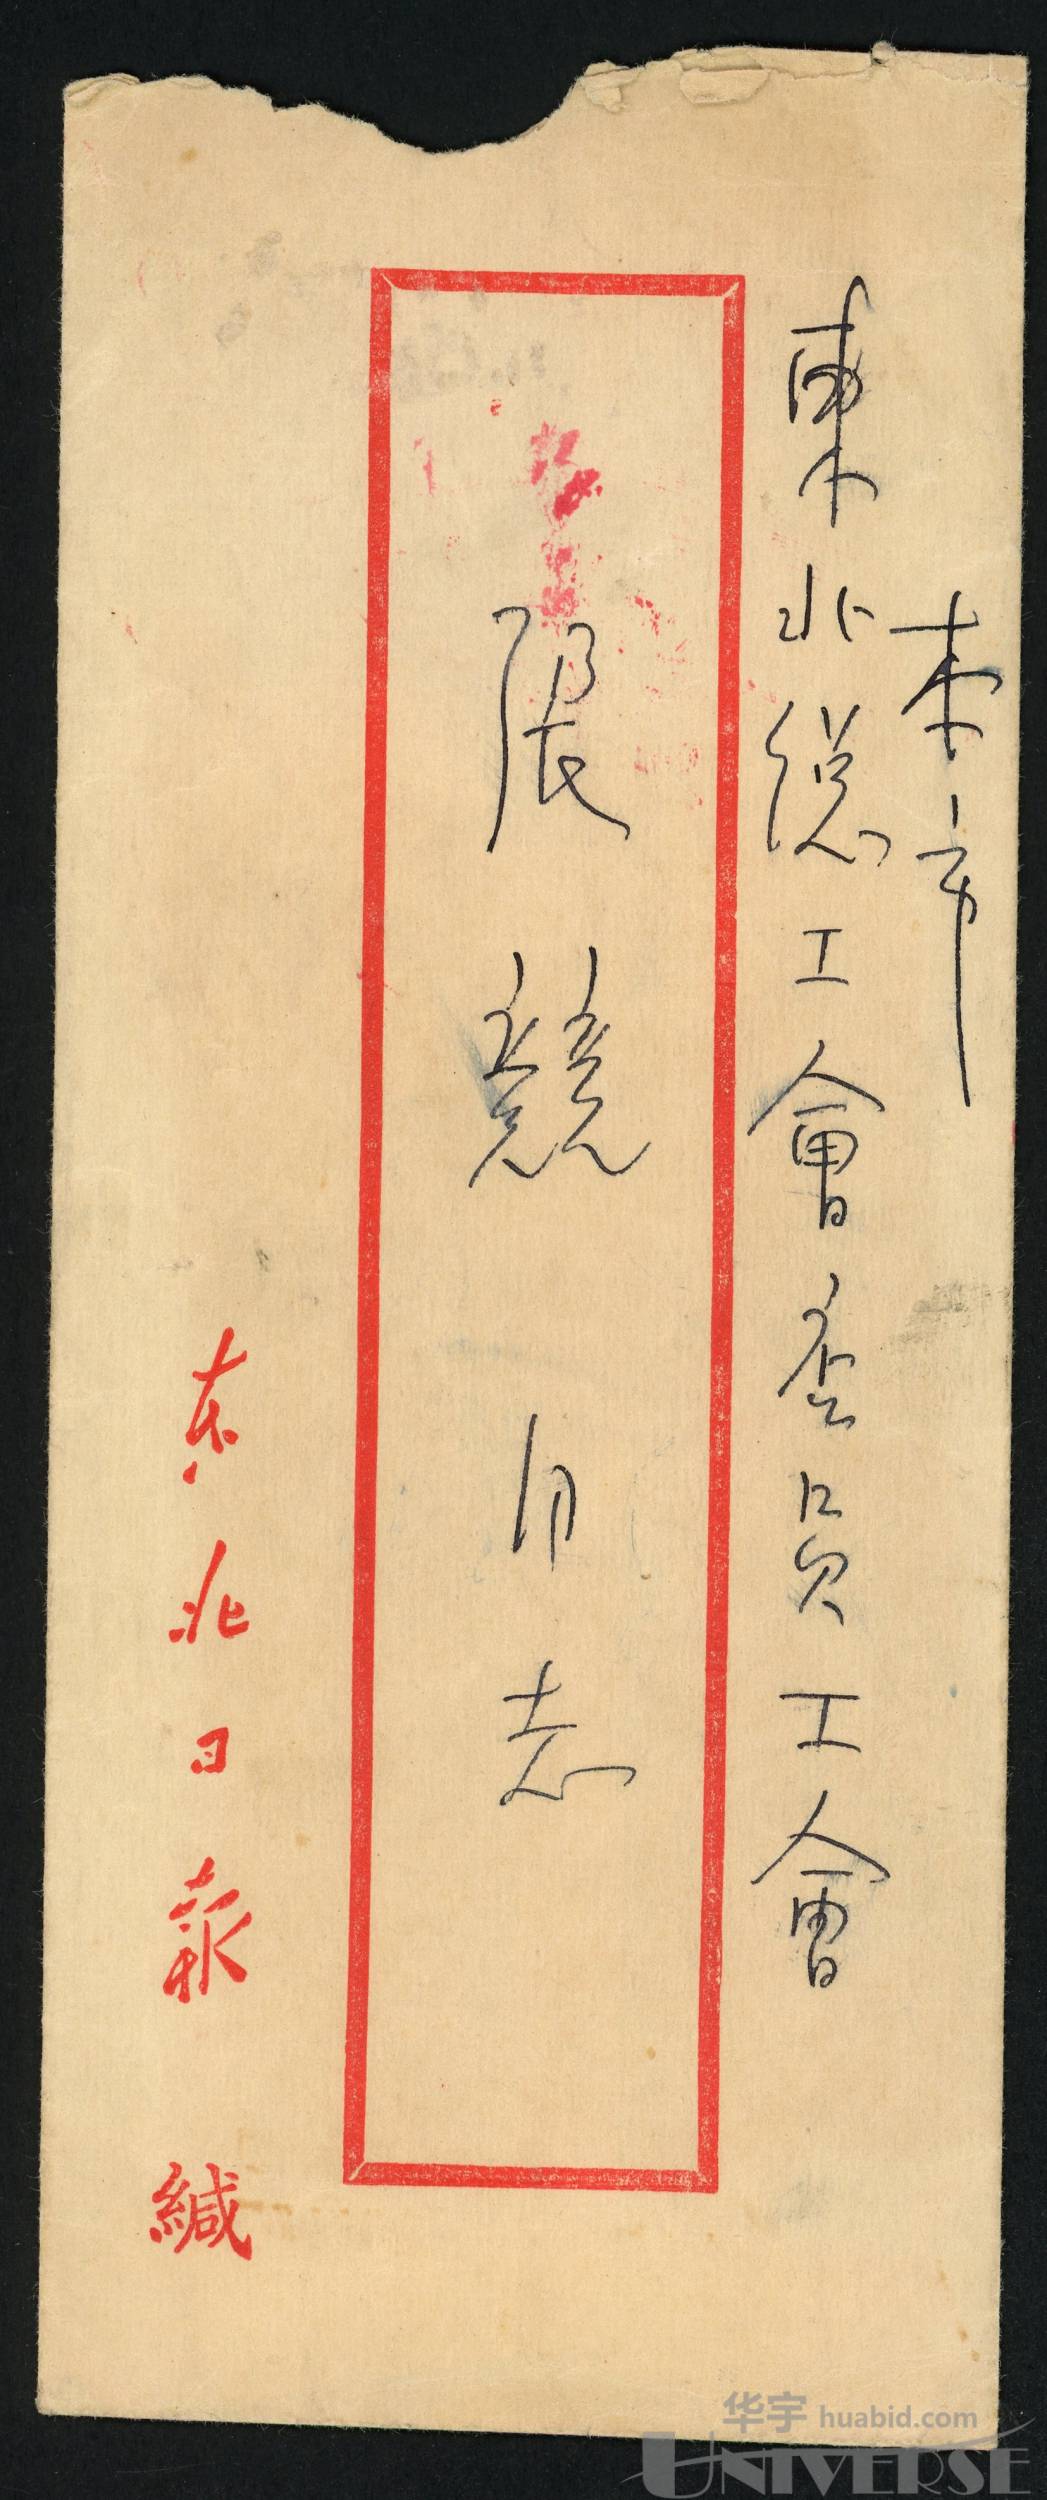 本市
東北總工會 員工會
張競同志
东北日報 緘
华宇 huabid.com
UNIVERSE